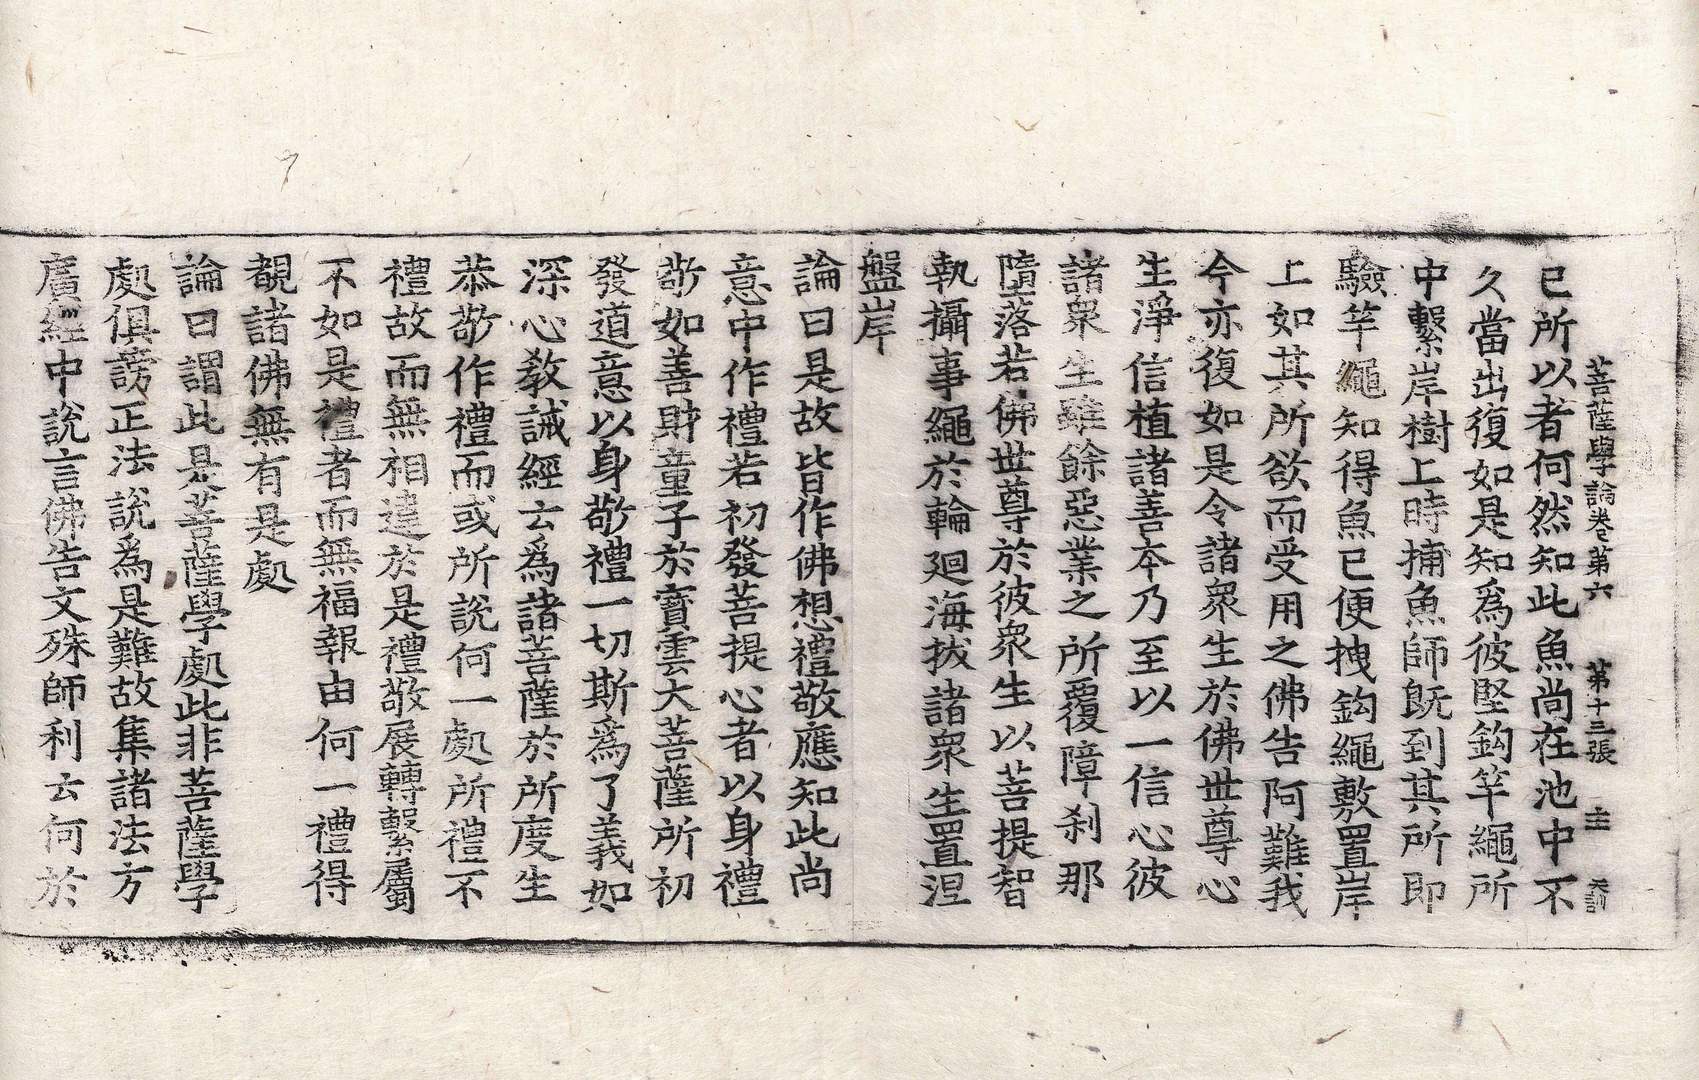 菩薩學論卷第六 第十三張 主
已所以者何然知此魚尚在池中不
久當出復如是知爲彼堅鈎竿繩所
中繫岸樹上時捕魚師既到其所即
驗竿繩知得魚已便拽鈎繩敷置岸
上如其所欲而受用之佛告阿難我
今亦復如是令諸衆生於佛世尊心
生淨信植諸善本乃至以一信心彼
諸衆生雖餘惡業之所覆障刹那
墮落若佛世尊於彼衆生以菩提智
執攝事繩於輪廻海拔諸衆生置涅
盤岸
論曰是故皆作佛想禮敬應知此尚
意中作禮若初發菩提心者以身禮
敬如善財童子於寶雲大菩薩所初
發道意以身敬禮一切斯爲了義如
深心教誡經云爲諸菩薩於所度生
恭敬作禮而或所說何一處所禮不
禮故而無相違於是禮敬展轉繫屬
不如是禮者而無福報由何一禮得
覩諸佛無有是處
論曰謂此是菩薩學處此非菩薩學
處俱謗正法說爲是難故集諸法方
廣經中說言佛告文殊師利云何於